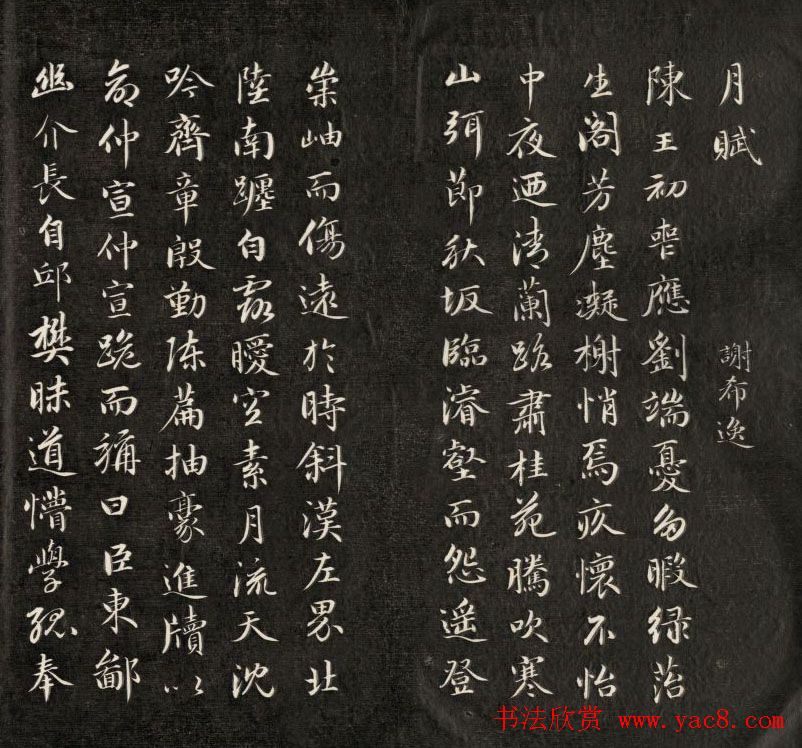 月賦
謝希逸
陳王初喪應劉端憂多暇綠苔
生閣芳塵凝榭悄焉疚懷不怡
中夜迺清蘭路肅桂苑騰吹寒
山弭節秋坂臨濬壑而怨遥登
崇岫而傷遠於時斜漢左界北
陸南躔白露曖空素月流天沈
吟齊章殷勤陳篇抽豪進牘以
命仲宣仲宣跪而稱曰臣東鄙
幽介長自邱樊昧道懵學孤奉
书法欣赏 www.yac8.com